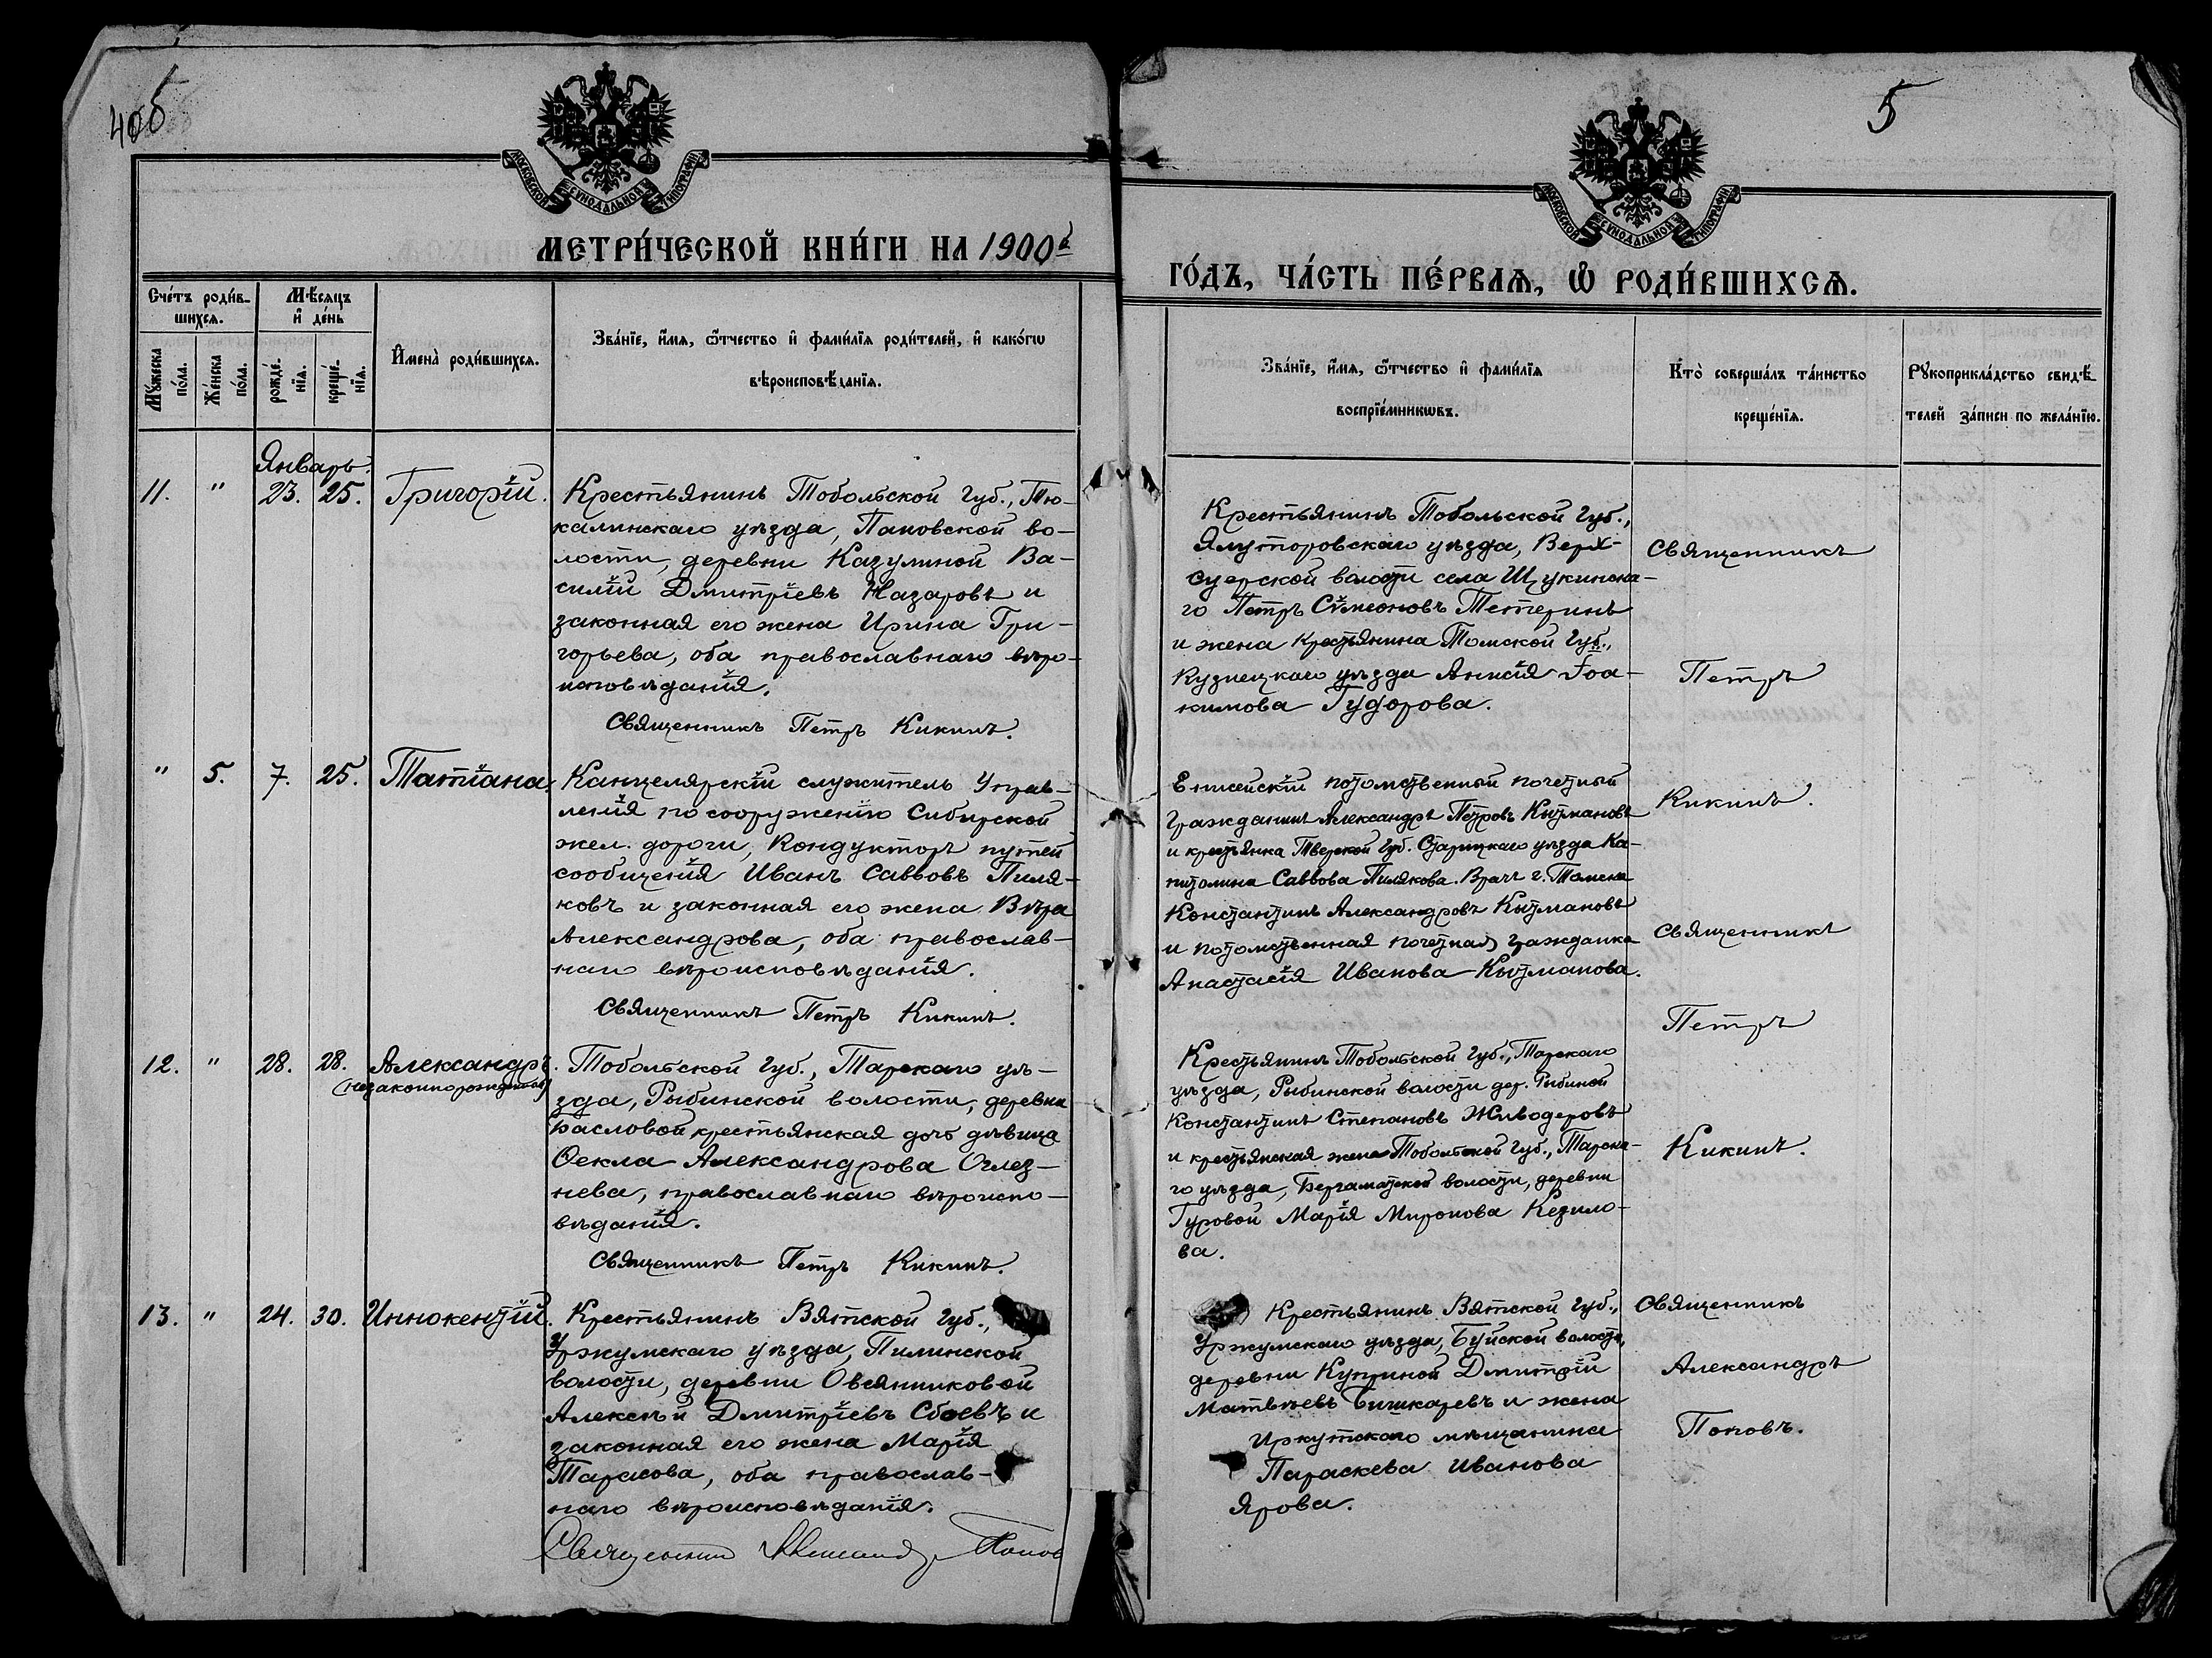 5
МОСКОВСКОЙ СѴНОДАЛЬНОЙ ТИПОГРАФІИ
МОСКОВСКОЙ СѴНОДАЛЬНОЙ ТИПОГРАФІИ
МЕТРИ́ЧЕСКОЙ КНИ́ГИ НА 1900й
ГО́ДЪ, ЧА́СТЬ ПЕ́РВАѦ, Ѡ҆ РОДИ́ВШИХСѦ.
Сче́тъ роди́в-
шихсѧ.
Мѣ́сѧцъ
и҆ де́нь
Мꙋ́жеска
по́ла.
Же́нска
по́ла.
рожде́-
нїѧ.
креще́-
нїѧ.
И҆мена̀ роди́вшихсѧ.
Зва́нїе, и҆́мѧ, ѻ҆́тчество и҆ фами́лїѧ роди́телей, и҆ како́гѡ
вѣроисповѣ́данїѧ.
Зва́нїе, и҆́мѧ, ѻ҆́тчество и҆ фами́лїѧ
воспрїе́мникѡвъ.
Кто̀ соверша́лъ та́инство
креще́нїѧ.
Рꙋкоприкла́дство свидѣ́-
телей за́писи по жела́нїю.
Январь.
11. " 23. 25. Григорій.
Крестьянинъ Тобольской Губ., Тю-
калинскаго уѣзда, Пановской во-
лости, деревни Казулиной Ва-
силій Дмитріевъ Назаровъ и
законная его жена Ирина Гри-
горьева, оба православнаго вѣро-
исповѣданія.
Священникъ Петръ Кикинъ.
Крестьянинъ Тобольской Губ.,
Ялуторовскаго уѣзда, Верх-
суерской волости села Щукинска-
го Петръ Сѵмеоновъ Тетеринъ
и жена крестьянина Томской Губ.,
Кузнецкаго уѣзда Анисія Іоа-
кимова Гудорова.
Священникъ
Петръ
Кикинъ.
" 5. 7. 25. Татіана.
Канцелярскій служитель Управ-
ленія по сооруженію Сибирской
жел. дороги, Кондукторъ путей
сообщенія Иванъ Саввовъ Пиля-
ковъ и законная его жена Вѣра
Александрова, оба православ-
наго вѣроисповѣданія.
Священникъ Петръ Кикинъ.
Енисейскій потомственный почетный
гражданинъ Александръ Петровъ Кытмановъ
и крестьянка Тверской Губ. Старицкаго уѣзда Ка-
питолина Саввова Пилякова. Врачъ г. Томска
Константинъ Александровъ Кытмановъ
и потомственная почетная гражданка
Анастасія Иванова Кытманова.
Священникъ
Петръ
Кикинъ.
12. " 28. 28. Александръ.
(незаконнорожденный)
Тобольской Губ., Тарскаго уѣ-
зда, Рыбинской волости, деревни
Басловой крестьянская дочь дѣвица
Ѳекла Александрова Оглез-
нева, православнаго вѣроиспо-
вѣданія.
Священникъ Петръ Кикинъ.
Крестьянинъ Тобольской Губ., Тарскаго
уѣзда, Рыбинской волости дер. Рыбиной
Константинъ Степановъ Живодеровъ
и крестьянская жена Тобольской Губ., Тарска-
го уѣзда, Бергаматской волости, деревни
Гуровой Марія Миронова Кезило-
ва.
13. " 24. 30. Иннокентій.
Крестьянинъ Вятской Губ.,
Уржумскаго уѣзда, Пилинской
волости, деревни Овсянниковой
Алексѣй Дмитріевъ Сбоевъ и
законная его жена Марія
Тарасова, оба православ-
наго вѣроисповѣданія.
Священникъ Александръ Поповъ
Крестьянинъ Вятской Губ.,
Уржумскаго уѣзда, Буйской волости,
деревни Куприной Дмитрій
Матвѣевъ Бишкаревъ и жена
Иркутскаго мѣщанина
Параскева Иванова
Ярова.
Священникъ
Александръ
Поповъ.